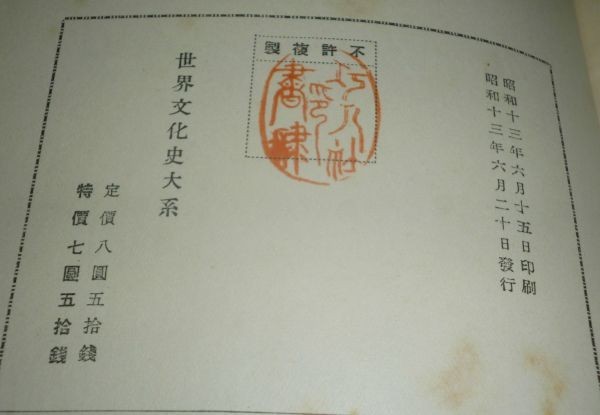 昭和十三年六月十五日印刷
昭和十三年六月二十日發行
不許複製
世界文化史大系
定價八圓五拾錢
特價七圓五拾錢